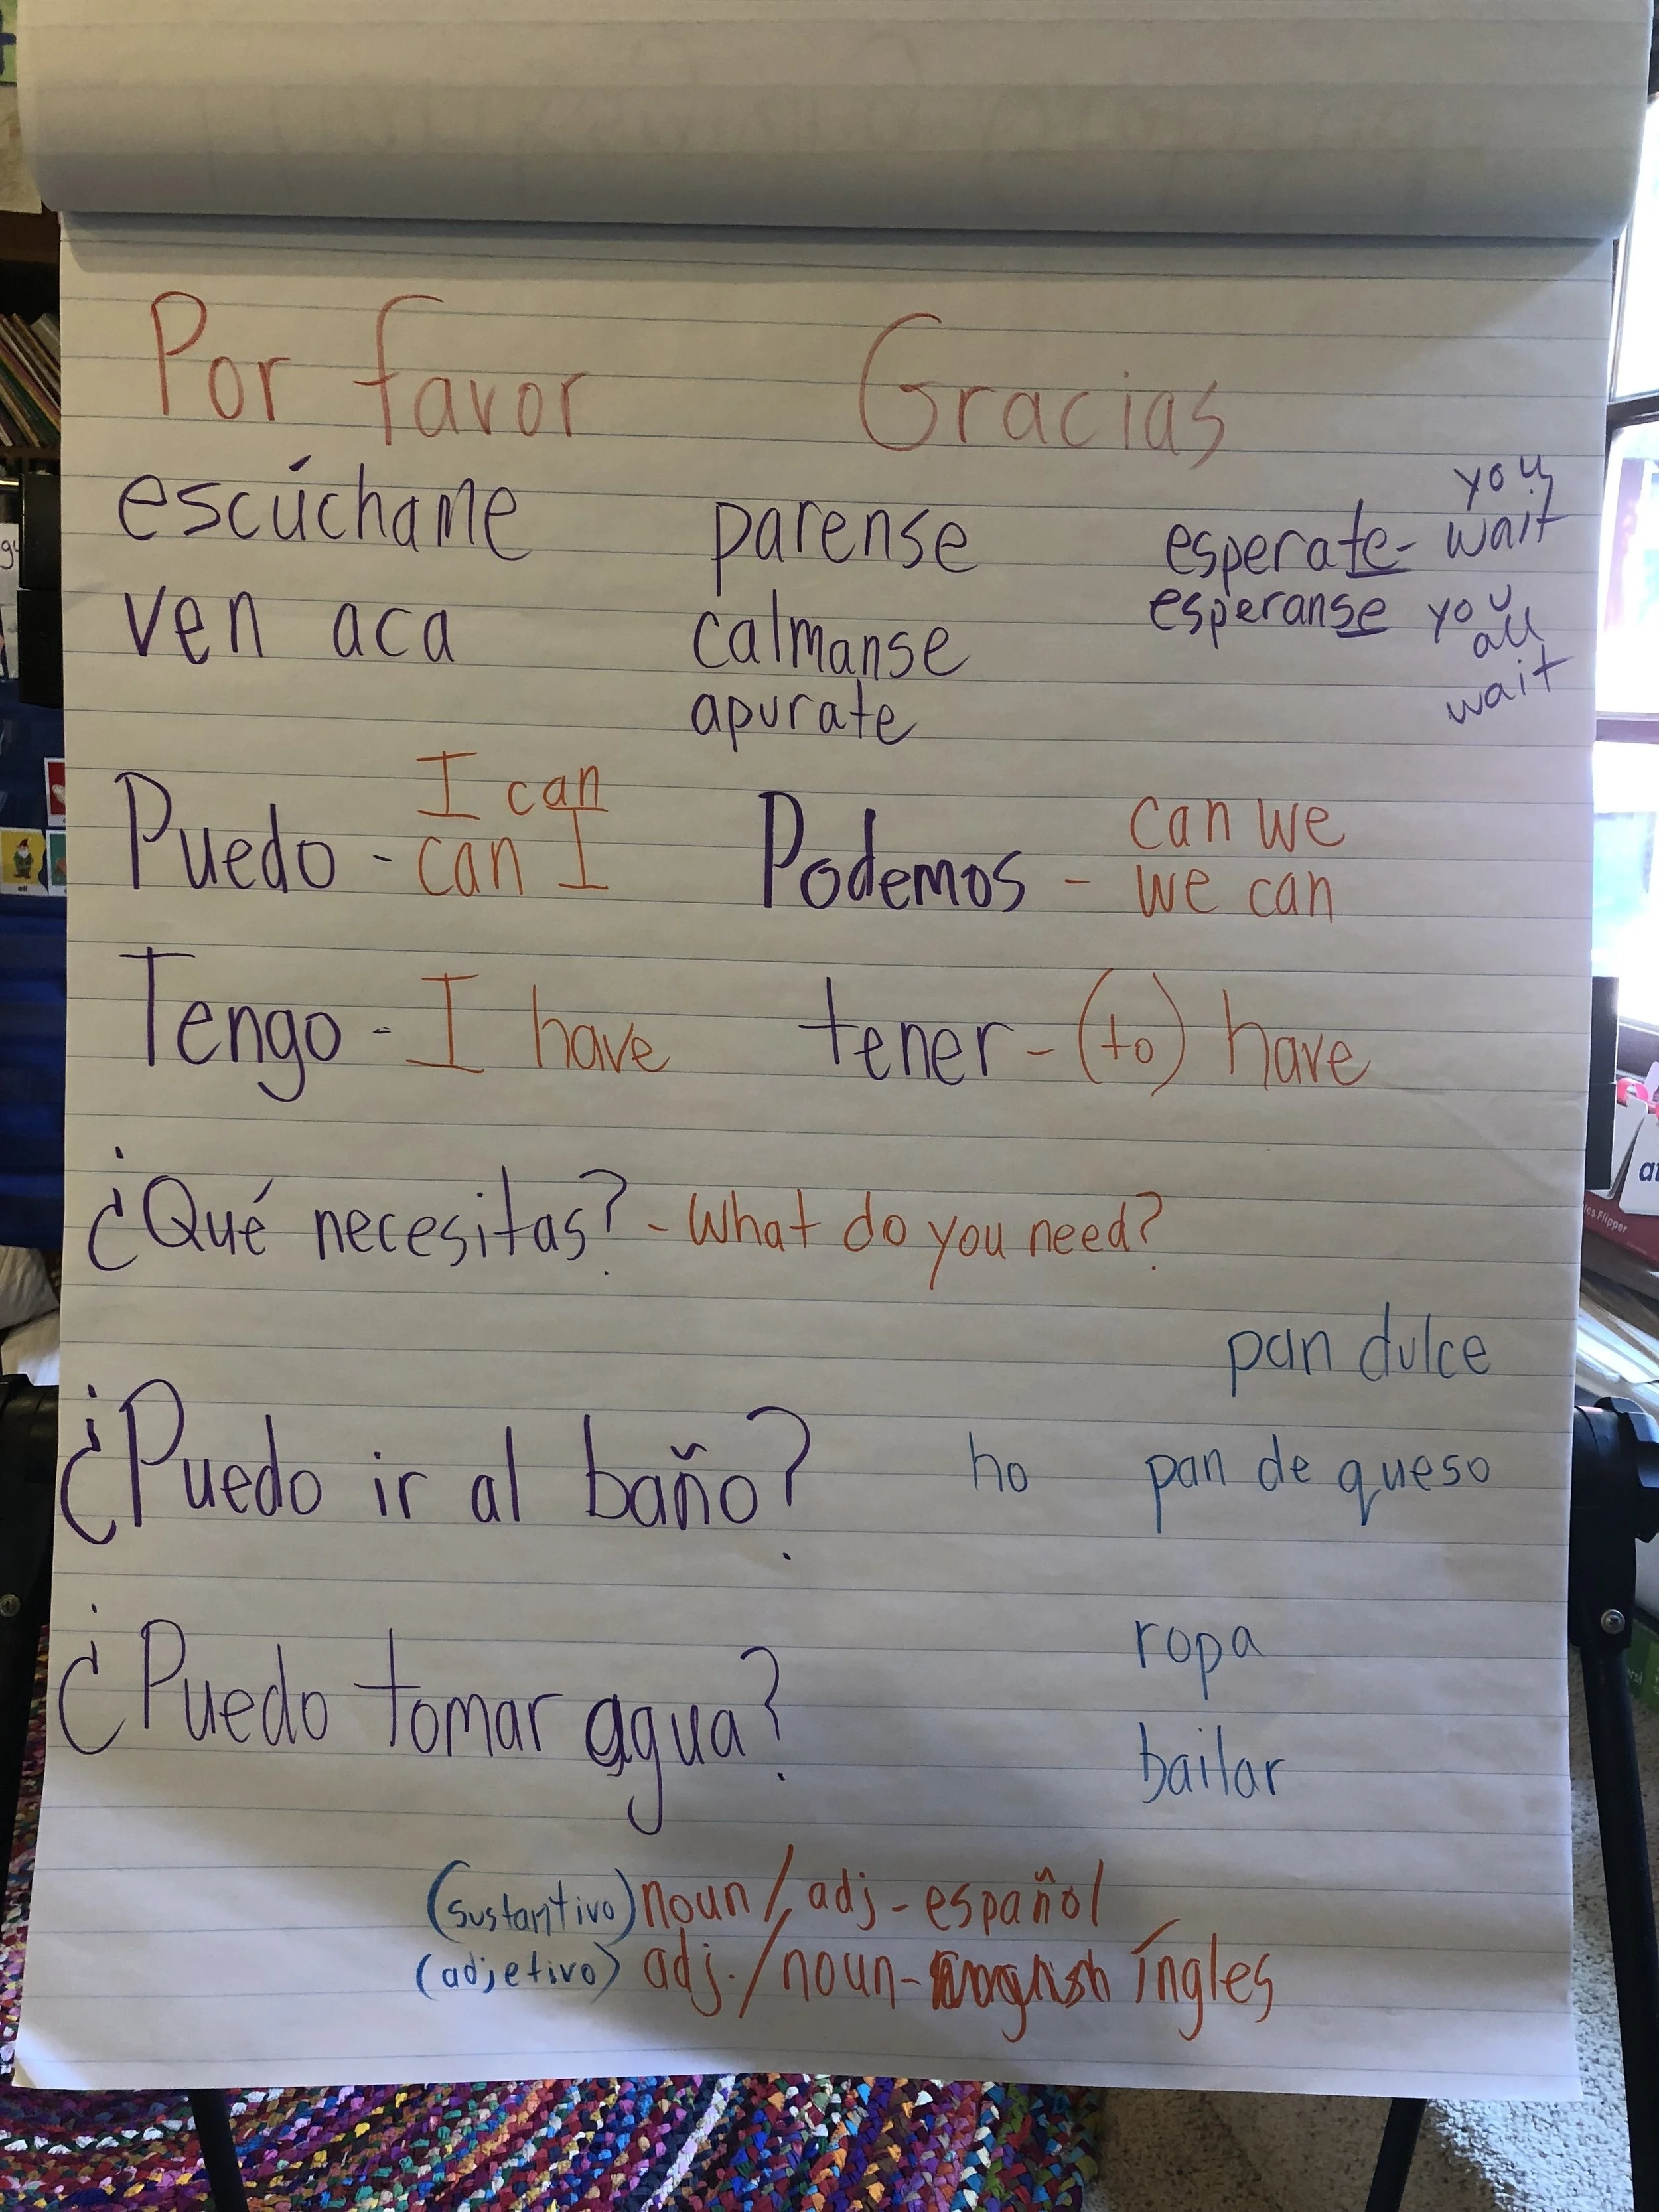 Por favor Gracias
escúchame parense esperate- you wait
ven aca calmanse esperanse you all wait
apurate
Puedo - I can
can I
Podemos - can we
we can
Tengo - I have tener - (to) have
¿Qué necesitas? - What do you need?
pan dulce
¿Puedo ir al baño? ho pan de queso
¿Puedo tomar agua? ropa
bailar
(sustantivo) noun / adj - español
(adjetivo) adj. / noun - íngles
ics Flipper